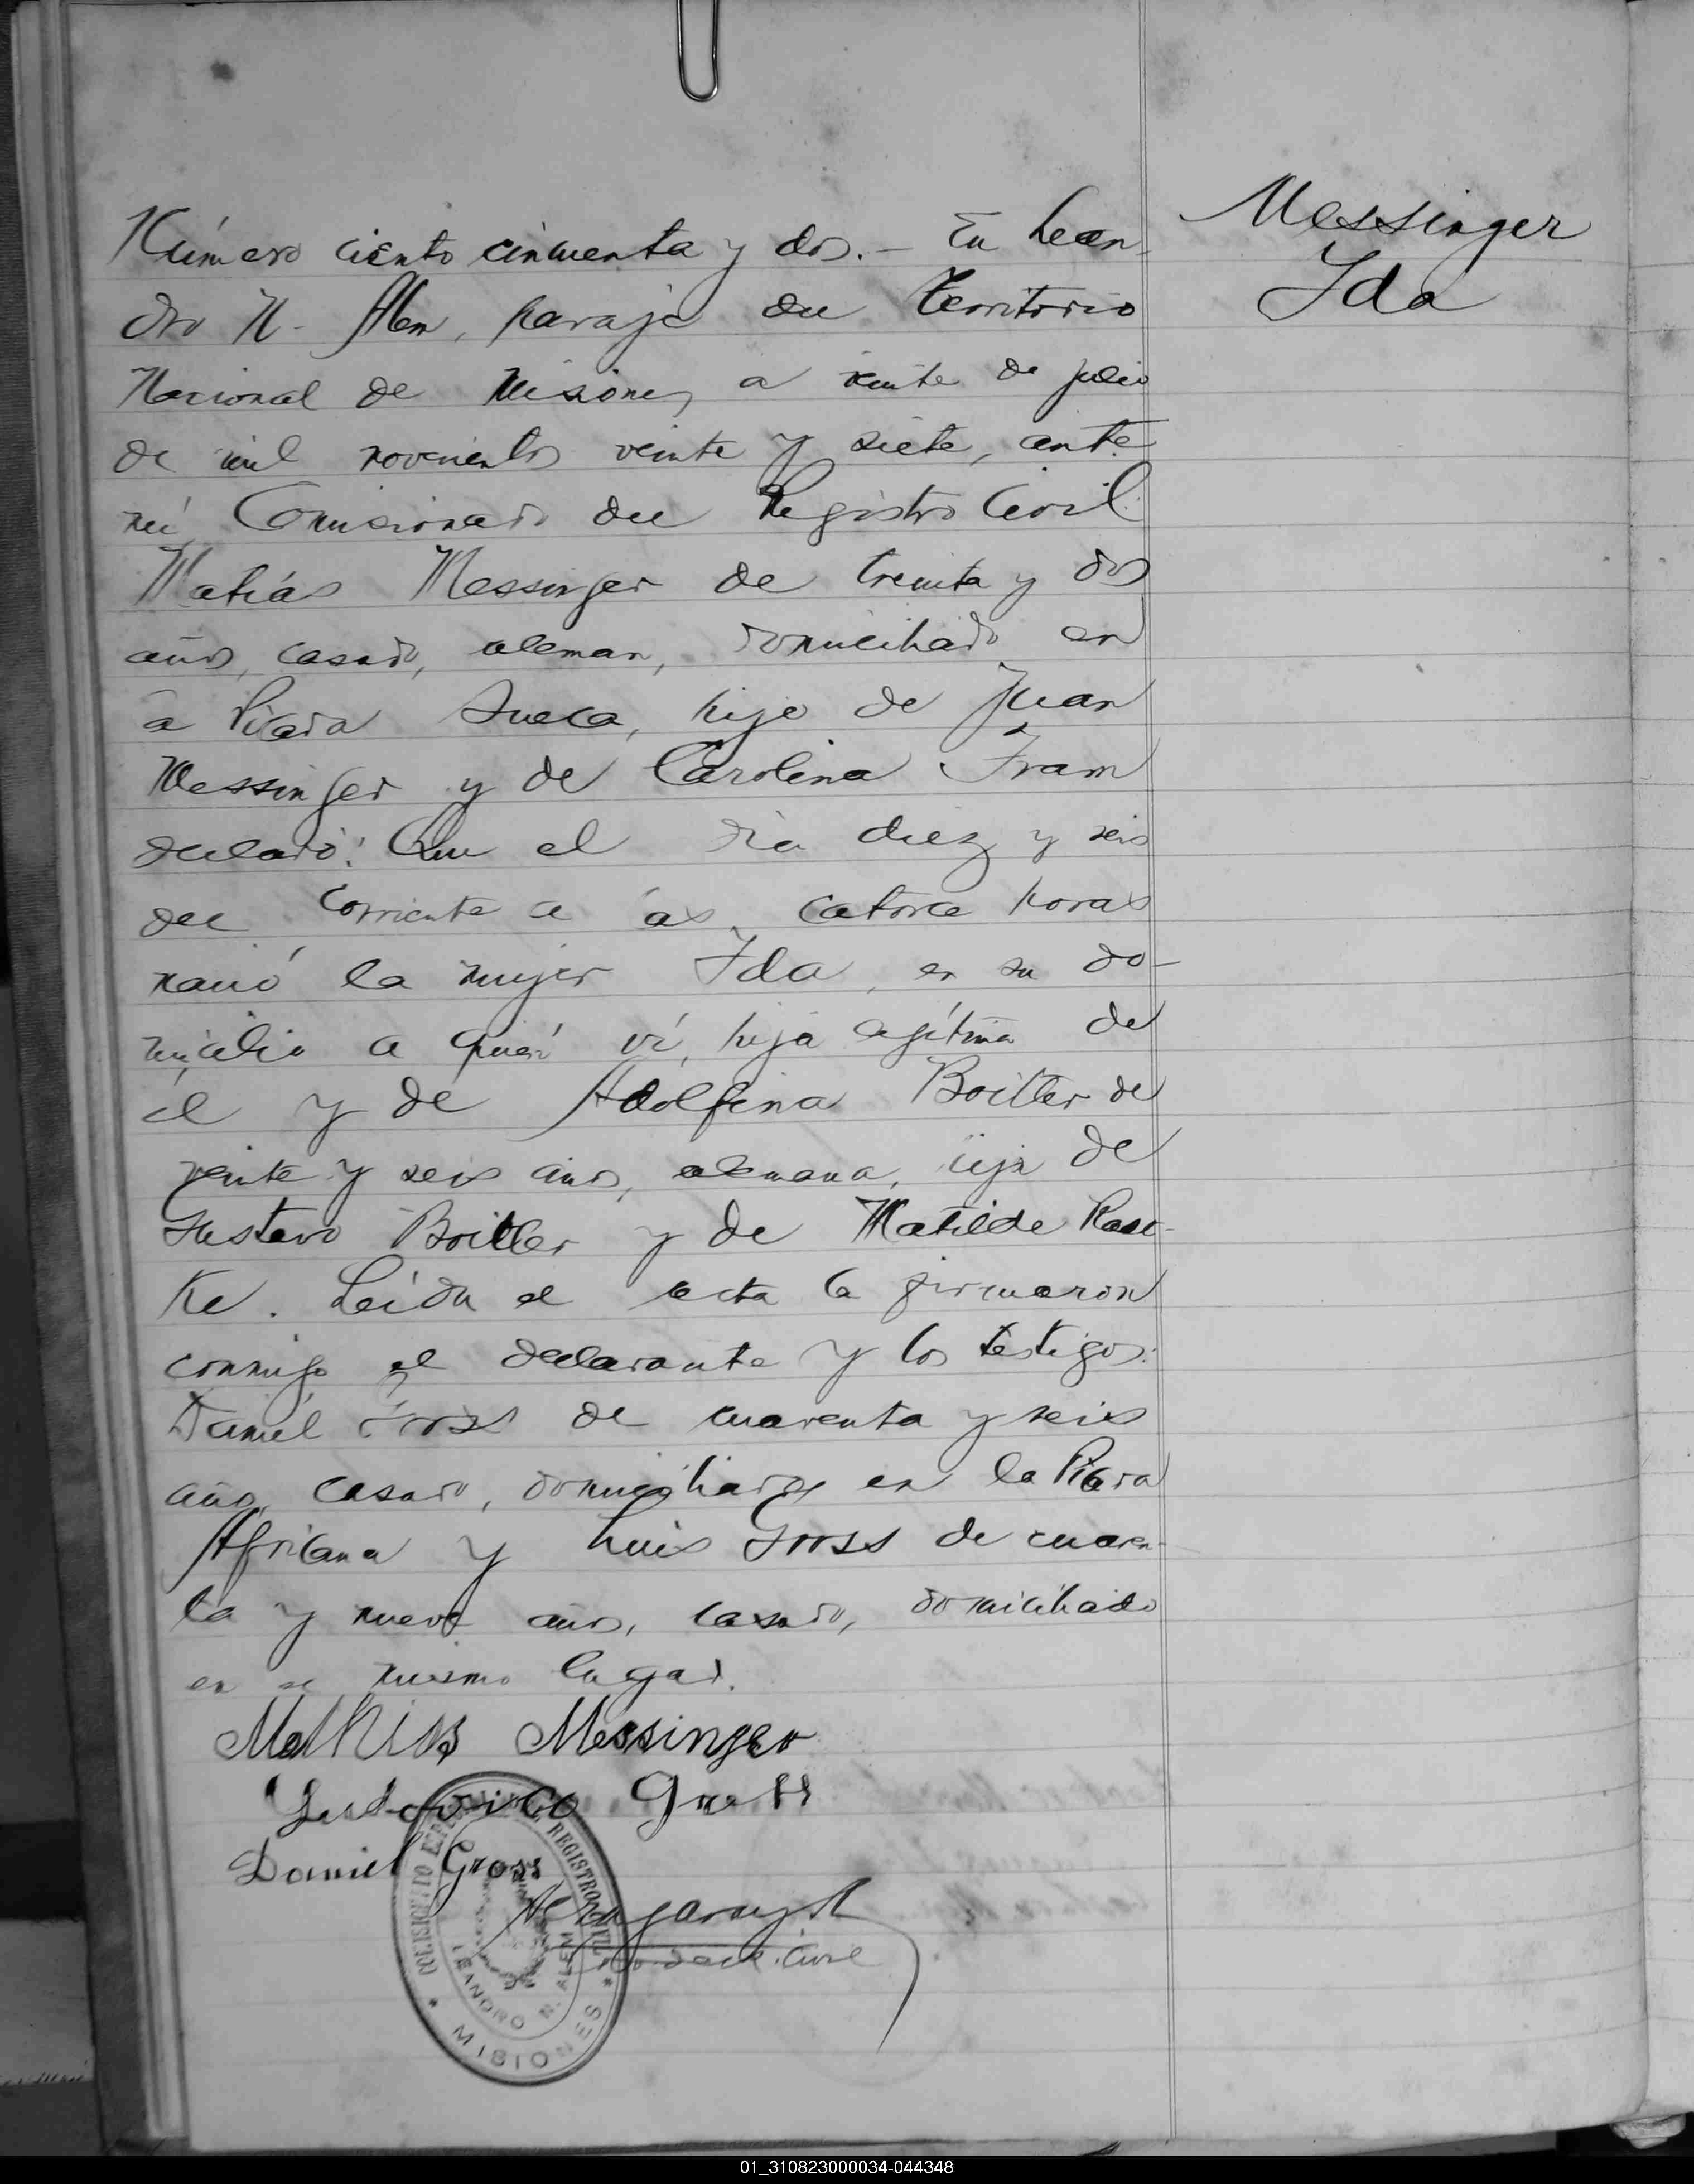 Número ciento cincuenta y dos.- En Lean-
dro N. Alem, paraje del Territorio
Nacional de Misiones, a veinte de julio
de mil novecientos veinte y siete, ante
mí Comisionado del Registro Civil
Matías Messinger de treinta y dos
años, casado, aleman, domiciliado en
la Picada Sueca, hijo de Juan
Messinger y de Carolina Fram
declaró: Que el día diez y seis
del corriente a las catorce horas
nació la mujer Ida, en su do-
micilio a quien ví, hija legítima de
él y de Adolfina Boitler de
veinte y seis años, alemana, hija de
Gustavo Boitler y de Matilde
ke. Leída el acta la firmaron
conmigo el declarante y los testigos:
Daniel Gross de cuarenta y seis
años casado, domiciliado en la Picada
Africana y Luis Gross de cuaren-
ta y nueve años, casado, domiciliado
en el mismo lugar.
Mathias Messinger
Ludovico Gross
Daniel Gross
Messinger
Ida
COMISIONADO REGISTRO CIVIL
LEANDRO N. ALEM
* MISIONES *
01_310823000034-044348